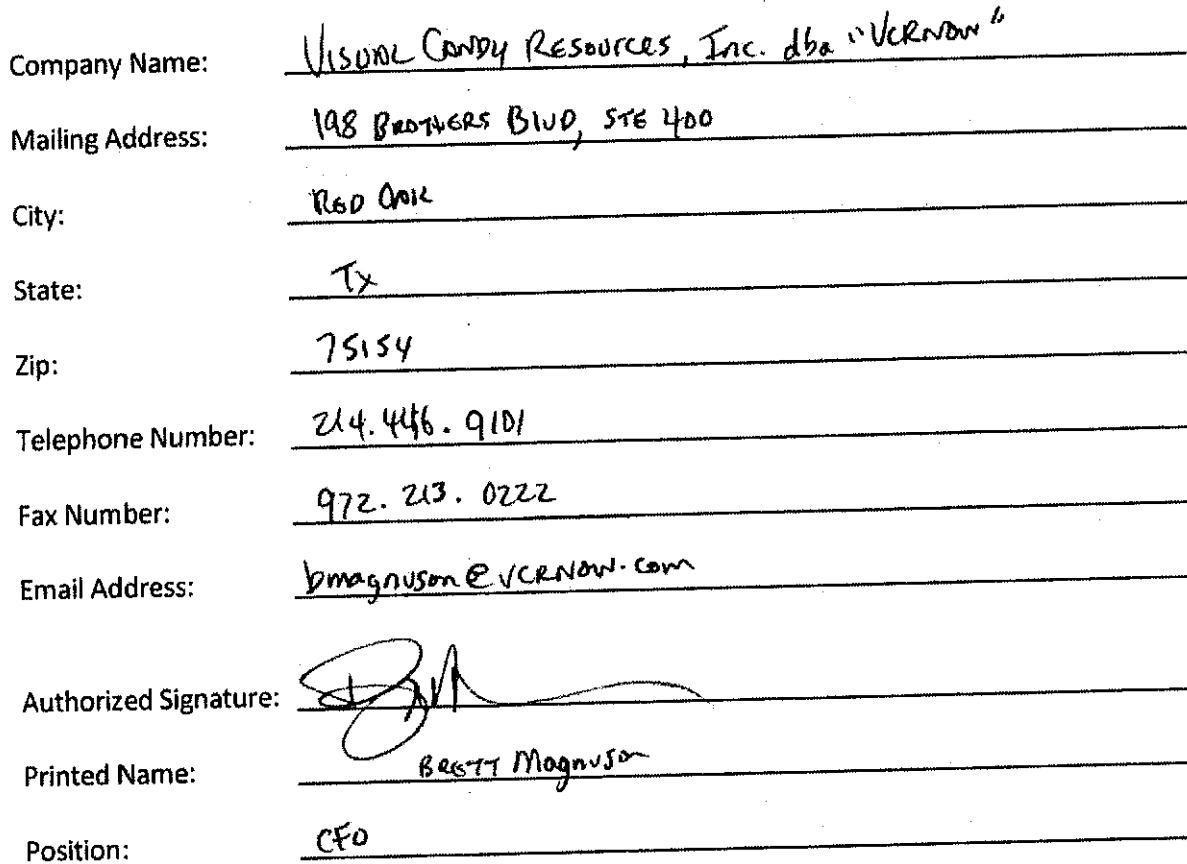 Company Name: Visual Candy Resources, Inc. dba "VCRNOW"
Mailing Address: 198 BROTHERS BLVD, STE 400
City: RED OAK
State: TX
Zip: 75154
Telephone Number: 214.446.9101
Fax Number: 972.213.0222
Email Address: bmagnuson@VCRNOW.com
Authorized Signature:
Printed Name: BRETT Magnuson
Position: CFO